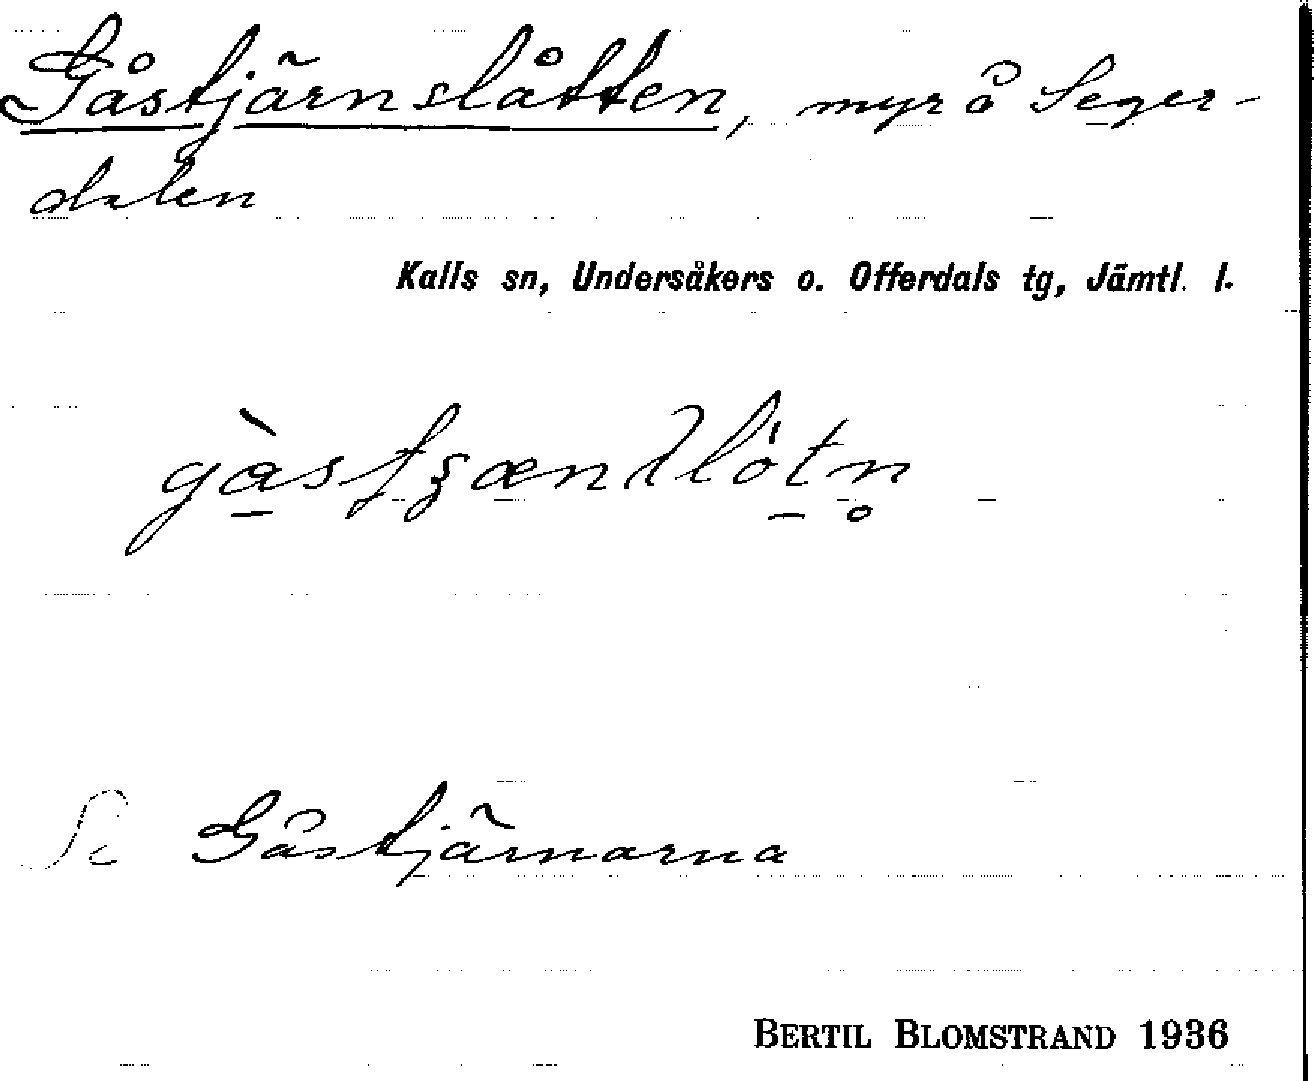 Gåstjärnslåtten, myr å Seger-
dalen
Kalls sn, Undersåkers o. Offerdals tg, Jämtl. l.
Se Gåstjärnarna
BERTIL BLOMSTRAND 1936